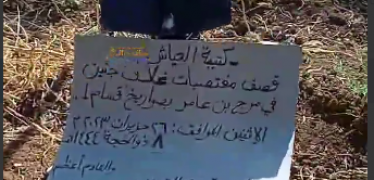 كتيبة العياش
قصف مغتصبات غلاف جنين
في مرج بن عامر بصواريخ قسام 1.
الاثنين الموافق: ٢٦ حزيران ٢٠٢٣ م
٨ ذو الحجة ١٤٤٤هـ
القادم أعظم